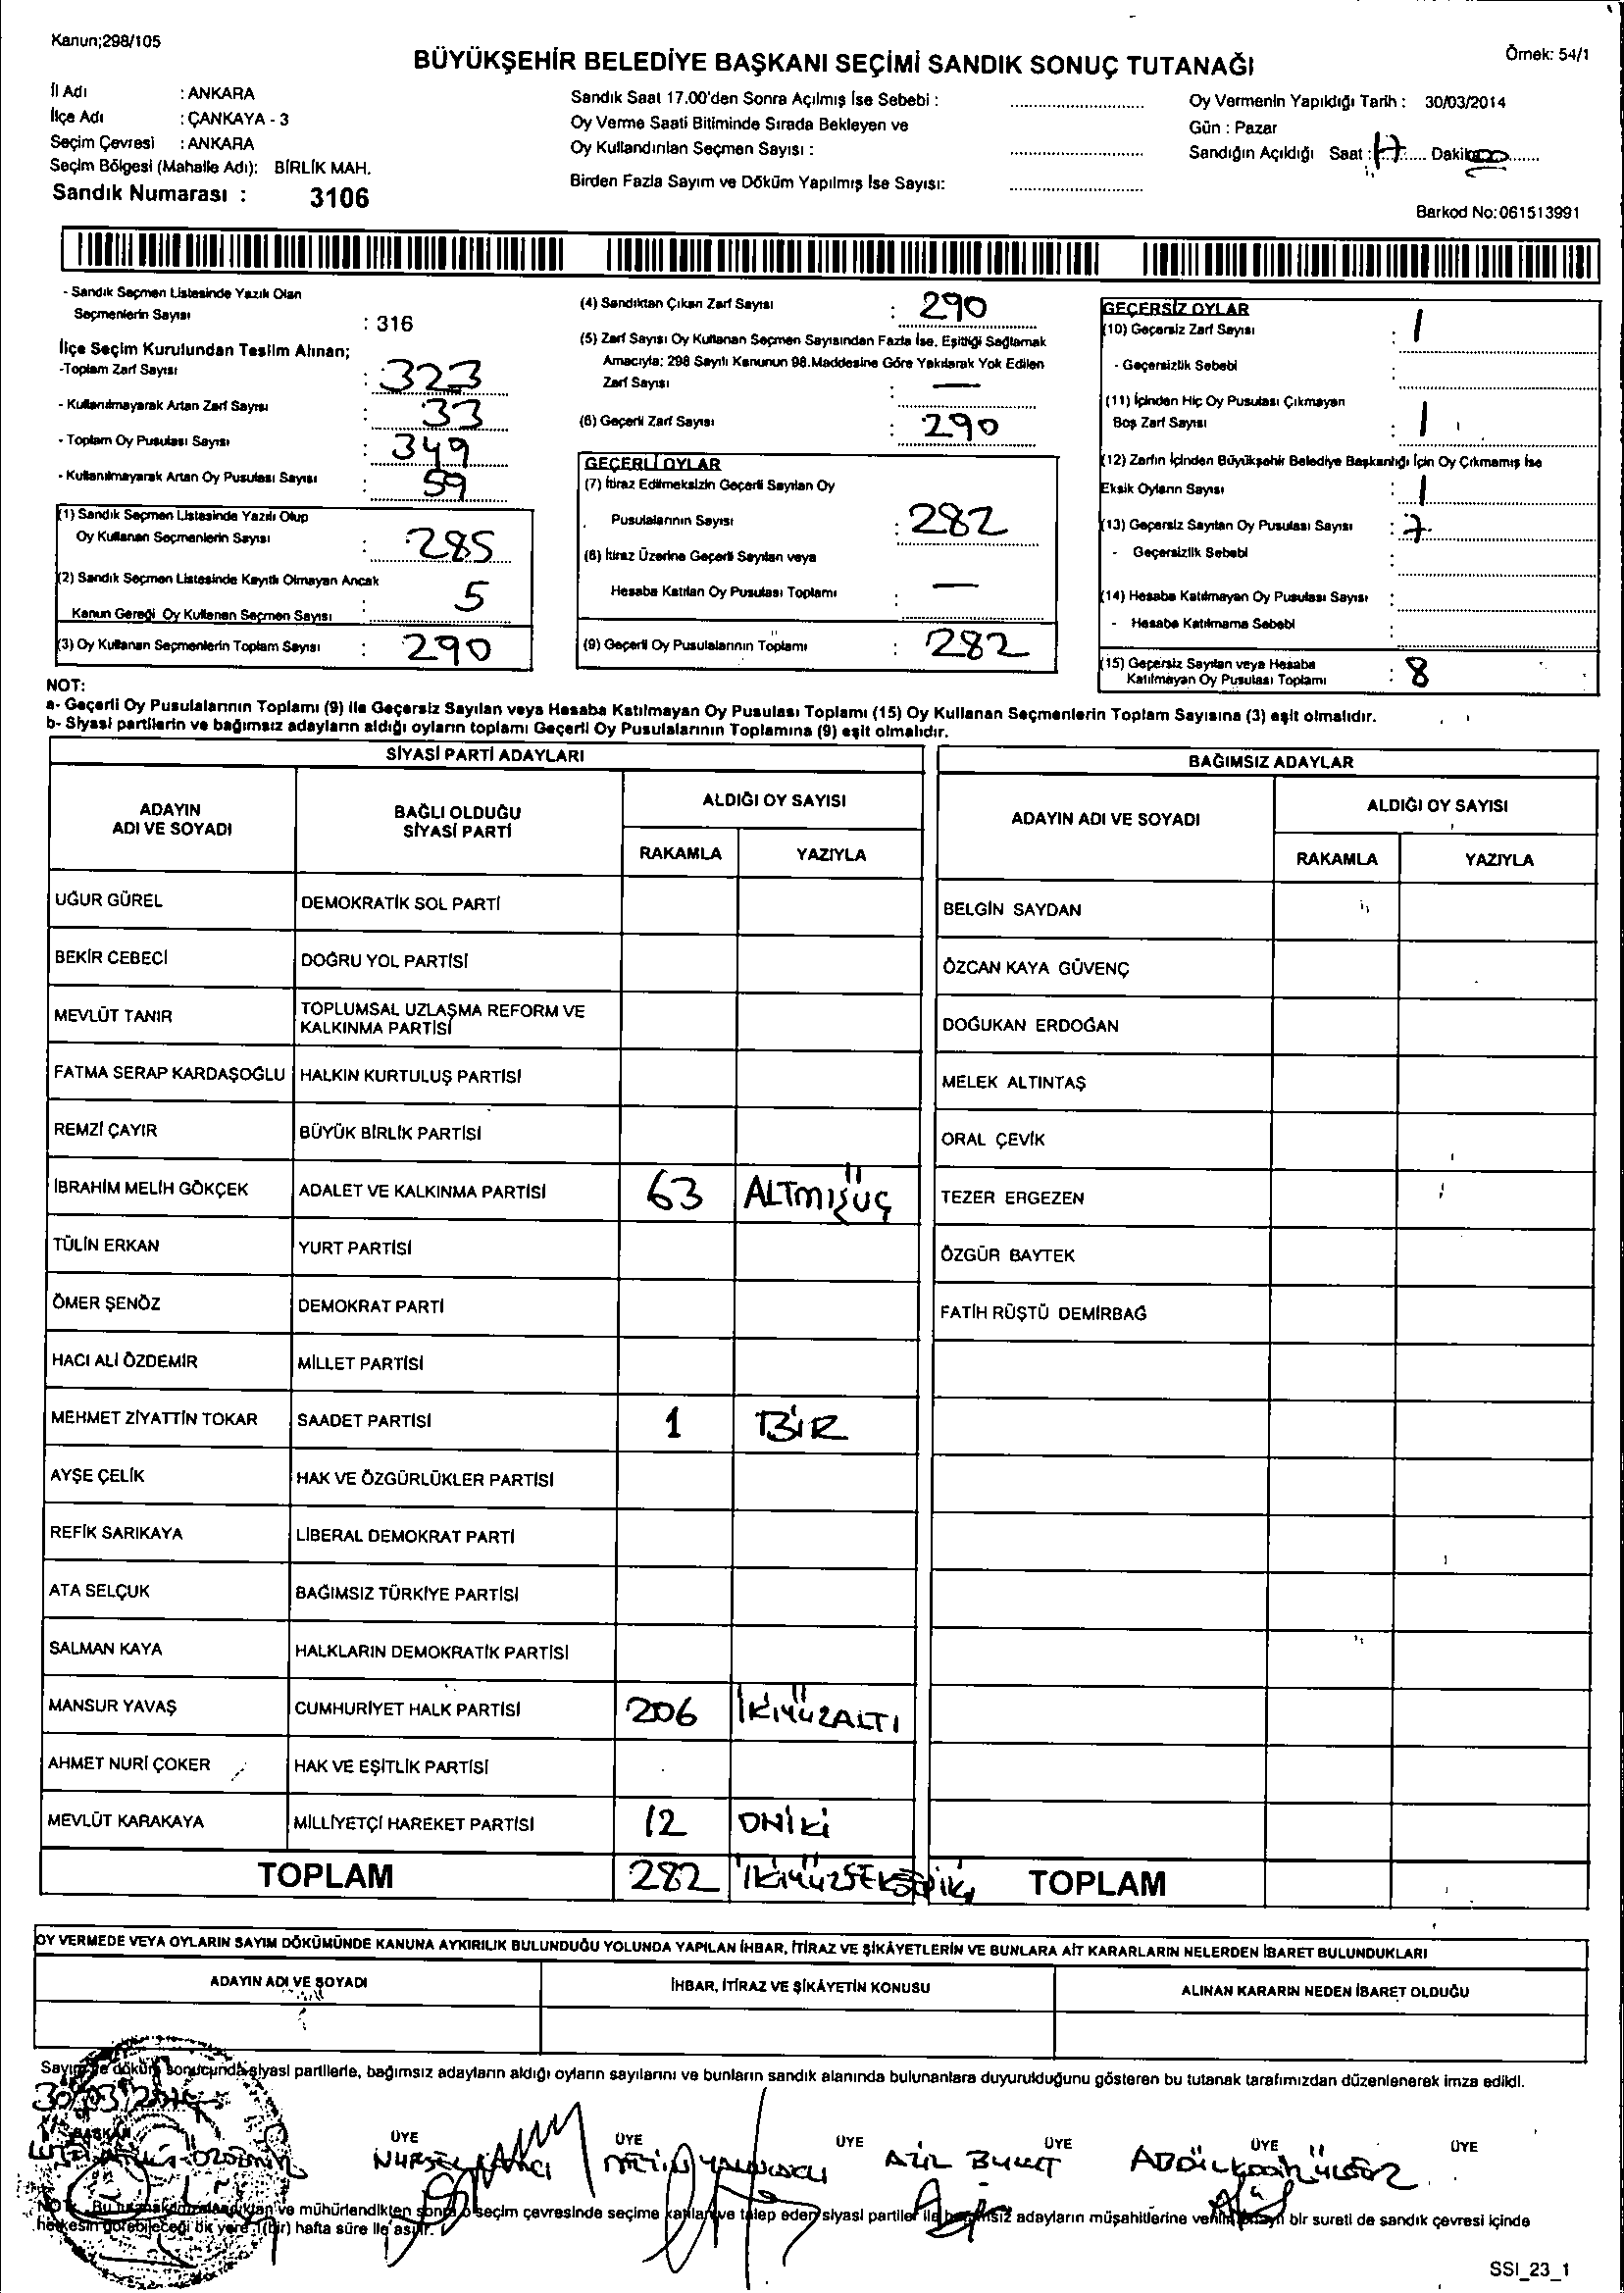 Kanun;298/105
BÜYÜKŞEHİR BELEDİYE BAŞKANI SEÇİMİ SANDIK SONUÇ TUTANAĞI
Örnek: 54/1
İl Adı : ANKARA
İlçe Adı : ÇANKAYA - 3
Seçim Çevresi : ANKARA
Seçim Bölgesi (Mahalle Adı): BİRLİK MAH.
Sandık Numarası : 3106
Sandık Saat 17.00'den Sonra Açılmış İse Sebebi :
Oy Verme Saati Bitiminde Sırada Bekleyen ve
Oy Kullandırılan Seçmen Sayısı :
Birden Fazla Sayım ve Döküm Yapılmış İse Sayısı:
Oy Vermenin Yapıldığı Tarih : 30/03/2014
Gün : Pazar
Sandığın Açıldığı Saat : 17 Dakika
Barkod No:061513991
- Sandık Seçmen Listesinde Yazılı Olan
Seçmenlerin Sayısı : 316
İlçe Seçim Kurulundan Teslim Alınan;
-Toplam Zarf Sayısı : 323
- Kullanılmayarak Artan Zarf Sayısı : 33
- Toplam Oy Pusulası Sayısı : 349
- Kullanılmayarak Artan Oy Pusulası Sayısı : 59
(1) Sandık Seçmen Listesinde Yazılı Olup
Oy Kullanan Seçmenlerin Sayısı : 285
(2) Sandık Seçmen Listesinde Kayıtlı Olmayan Ancak
Kanun Gereği Oy Kullanan Seçmen Sayısı : 5
(3) Oy Kullanan Seçmenlerin Toplam Sayısı : 290
(4) Sandıktan Çıkan Zarf Sayısı : 290
(5) Zarf Sayısı Oy Kullanan Seçmen Sayısından Fazla İse, Eşitliği Sağlamak
Amacıyla; 298 Sayılı Kanunun 98.Maddesine Göre Yakılarak Yok Edilen
Zarf Sayısı : —
(6) Geçerli Zarf Sayısı : 290
GEÇERLİ OYLAR
(7) İtiraz Edilmeksizin Geçerli Sayılan Oy
Pusulalarının Sayısı : 282
(8) İtiraz Üzerine Geçerli Sayılan veya
Hesaba Katılan Oy Pusulası Toplamı : —
(9) Geçerli Oy Pusulalarının Toplamı : 282
GEÇERSİZ OYLAR
(10) Geçersiz Zarf Sayısı : 1
- Geçersizlik Sebebi :
(11) İçinden Hiç Oy Pusulası Çıkmayan
Boş Zarf Sayısı : 1
(12) Zarfın İçinden Büyükşehir Belediye Başkanlığı İçin Oy Çıkmamış İse
Eksik Oyların Sayısı : 1
(13) Geçersiz Sayılan Oy Pusulası Sayısı : 7
- Geçersizlik Sebebi :
(14) Hesaba Katılmayan Oy Pusulası Sayısı :
- Hesaba Katılmama Sebebi :
(15) Geçersiz Sayılan veya Hesaba
Katılmayan Oy Pusulası Toplamı : 8
NOT:
a- Geçerli Oy Pusulalarının Toplamı (9) ile Geçersiz Sayılan veya Hesaba Katılmayan Oy Pusulası Toplamı (15) Oy Kullanan Seçmenlerin Toplam Sayısına (3) eşit olmalıdır.
b- Siyasi partilerin ve bağımsız adayların aldığı oyların toplamı Geçerli Oy Pusulalarının Toplamına (9) eşit olmalıdır.
SİYASİ PARTİ ADAYLARI
ADAYIN ADI VE SOYADI
BAĞLI OLDUĞU SİYASİ PARTİ
ALDIĞI OY SAYISI
RAKAMLA YAZIYLA
UĞUR GÜREL DEMOKRATİK SOL PARTİ
BEKİR CEBECİ DOĞRU YOL PARTİSİ
MEVLÜT TANIR TOPLUMSAL UZLAŞMA REFORM VE
KALKINMA PARTİSİ
FATMA SERAP KARDAŞOĞLU HALKIN KURTULUŞ PARTİSİ
REMZİ ÇAYIR BÜYÜK BİRLİK PARTİSİ
İBRAHİM MELİH GÖKÇEK ADALET VE KALKINMA PARTİSİ 63 ALTMIŞÜÇ
TÜLİN ERKAN YURT PARTİSİ
ÖMER ŞENÖZ DEMOKRAT PARTİ
HACI ALİ ÖZDEMİR MİLLET PARTİSİ
MEHMET ZİYATTİN TOKAR SAADET PARTİSİ 1 BİR
AYŞE ÇELİK HAK VE ÖZGÜRLÜKLER PARTİSİ
REFİK SARIKAYA LİBERAL DEMOKRAT PARTİ
ATA SELÇUK BAĞIMSIZ TÜRKİYE PARTİSİ
SALMAN KAYA HALKLARIN DEMOKRATİK PARTİSİ
MANSUR YAVAŞ CUMHURİYET HALK PARTİSİ 206 İKİYÜZALTI
AHMET NURİ ÇOKER HAK VE EŞİTLİK PARTİSİ
MEVLÜT KARAKAYA MİLLİYETÇİ HAREKET PARTİSİ 12 ONİKİ
TOPLAM 282 İKİYÜZSEKSENİKİ
BAĞIMSIZ ADAYLAR
ADAYIN ADI VE SOYADI
ALDIĞI OY SAYISI
RAKAMLA YAZIYLA
BELGİN SAYDAN
ÖZCAN KAYA GÜVENÇ
DOĞUKAN ERDOĞAN
MELEK ALTINTAŞ
ORAL ÇEVİK
TEZER ERGEZEN
ÖZGÜR BAYTEK
FATİH RÜŞTÜ DEMİRBAĞ
TOPLAM
OY VERMEDE VEYA OYLARIN SAYIM DÖKÜMÜNDE KANUNA AYKIRILIK BULUNDUĞU YOLUNDA YAPILAN İHBAR, İTİRAZ VE ŞİKÂYETLERİN VE BUNLARA AİT KARARLARIN NELERDEN İBARET BULUNDUKLARI
ADAYIN ADI VE SOYADI
İHBAR, İTİRAZ VE ŞİKÂYETİN KONUSU
ALINAN KARARIN NEDEN İBARET OLDUĞU
Sayım ve döküm sonucunda siyasi partilerle, bağımsız adayların aldığı oyların sayılarını ve bunların sandık alanında bulunanlara duyurulduğunu gösteren bu tutanak tarafımızdan düzenlenerek imza edildi.
30/03/2014
BAŞKAN ÜYE ÜYE ÜYE ÜYE ÜYE ÜYE
AZİL BULUT
NOT: Bu tutanak imzalandıktan ve mühürlendikten sonra o seçim çevresinde seçime katılan ve talep eden siyasi partiler ile bağımsız adayların müşahitlerine verilir. Onaylı bir sureti de sandık çevresi içinde
herkesin görebileceği bir yere 1 (bir) hafta süre ile asılır.
SSI_23_1